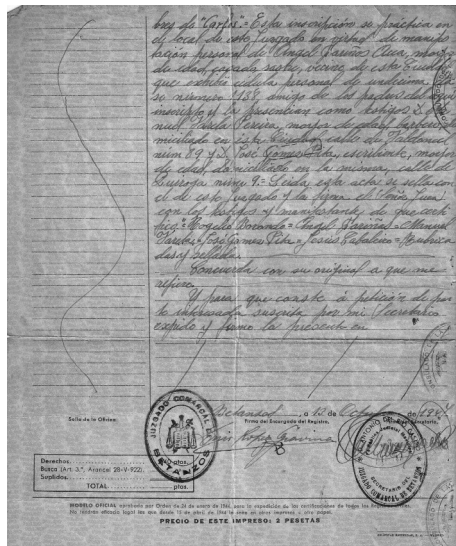 bres de "Carlos".= Esta inscripción se practica en
el local de este Juzgado en virtud de manifes-
tación personal de Angel Fariños, mayor
de edad, casado, sastre, vecino de esta Ciudad
que exhibe cédula personal de undécima
se número 1158, amigo de los padres del
inscripto, y la presencian como testigos D.
Varela Pereira, mayor de edad, barbero,
miciliado en esta Ciudad, calle de Valdoncel
núm 89 y D. José Gómez Pita, escribiente, mayor
de edad, domiciliado en la misma, calle de
núm 9.= Leida esta acta se sella con
el de este Juzgado y la firma el Señor Juez
con los testigos y manifestante de que certi
fico.= Rogelio Borondo.= Angel Fariñas.= Manuel
Varela.= José Gómez Pita.= Jesús = Rubrica
das y sellado.
Concuerda con su original a que me
refiero.
Y para que conste a petición de par
te interesada suscrita por mi Secretario
expido y firmo la presente en
Betanzos, a 12 de de 19
Sello de la Oficina.
Firma del Encargado del Registro,
JUZGADO COMARCAL
BETANZOS
JUZGADO COMARCAL DE BETANZOS
SECRETARIO
Derechos. ptas.
Busca (Art. 3.º, Arancel 28-V-922).
Suplidos.
TOTAL ptas.
MODELO OFICIAL aprobado por Orden de 24 de enero de para la expedición de las certificaciones de todos los
No tendrán eficacia legal las que desde 15 de abril de se en otros impresos u otro papel.
PRECIO DE ESTE IMPRESO: 2 PESETAS